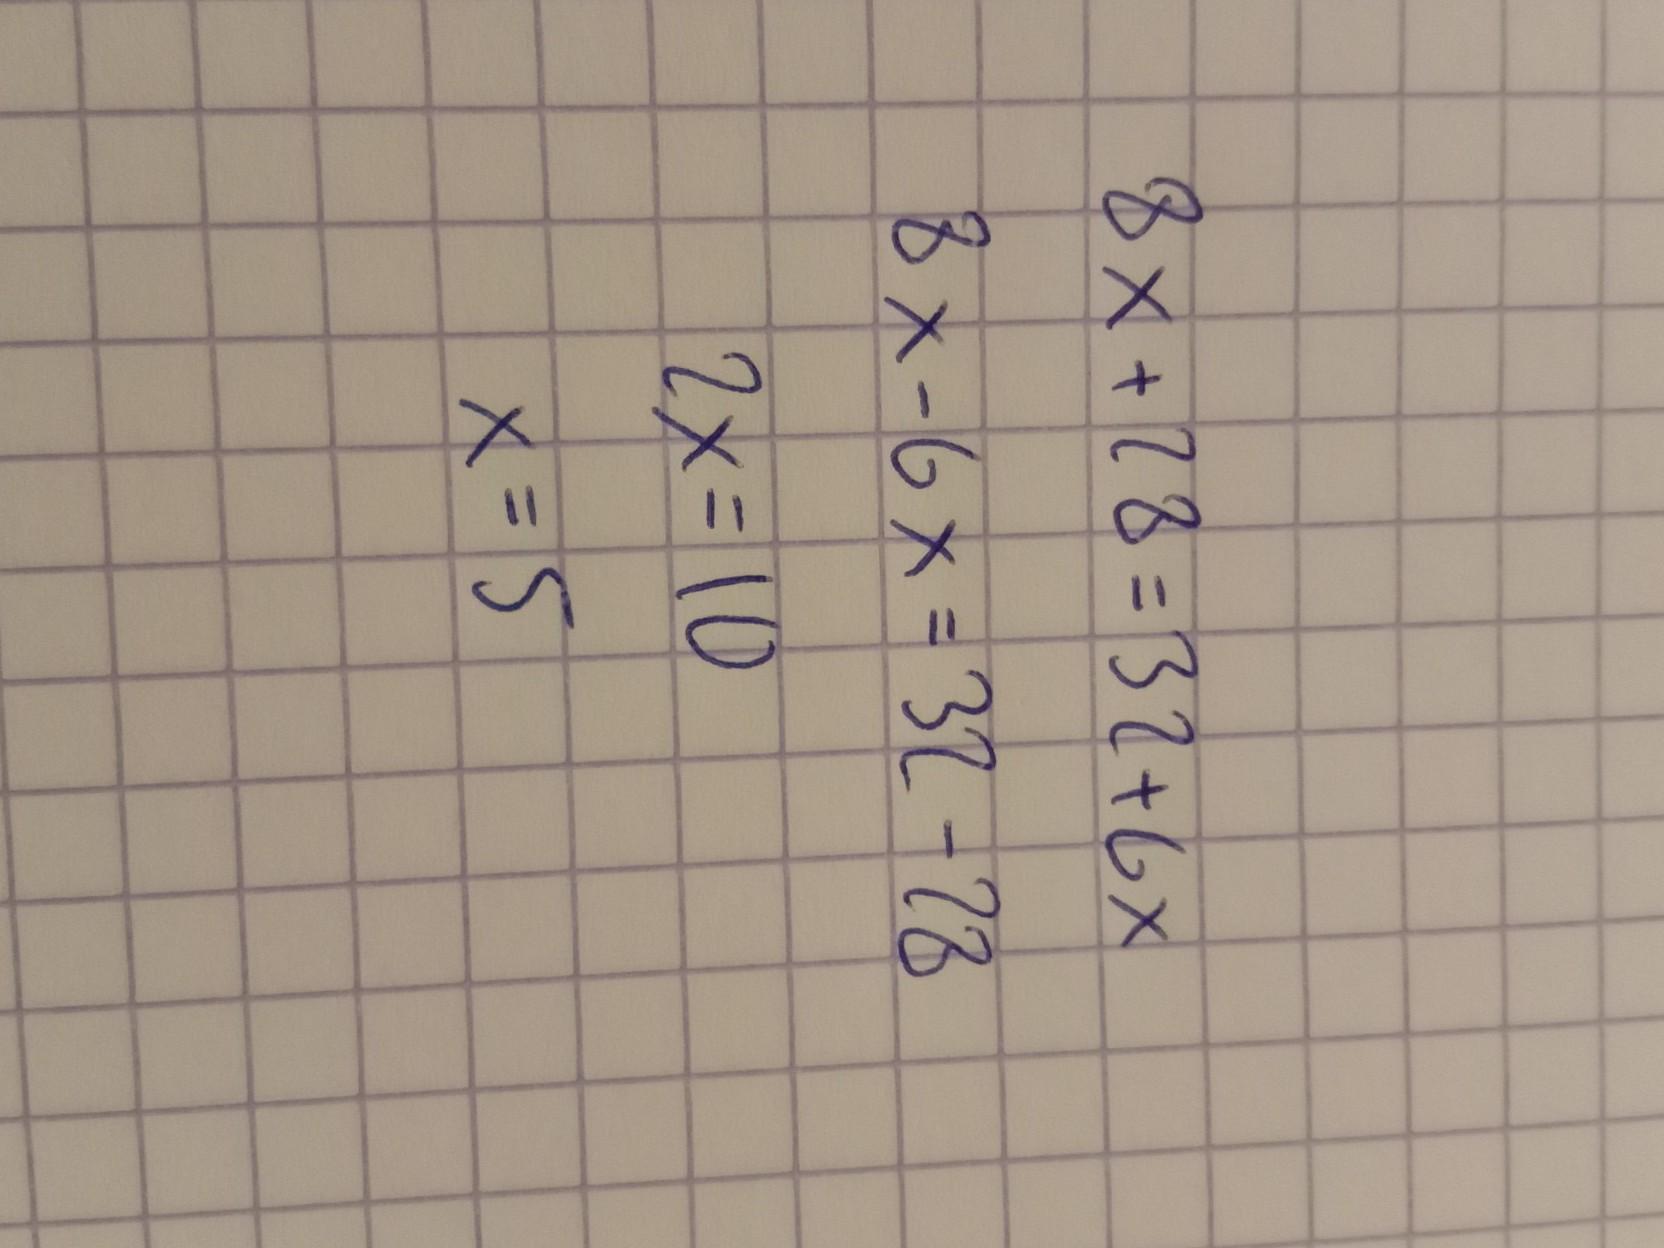 8x+28=32+6x
8x-6x=32-28
2x=10
x=5